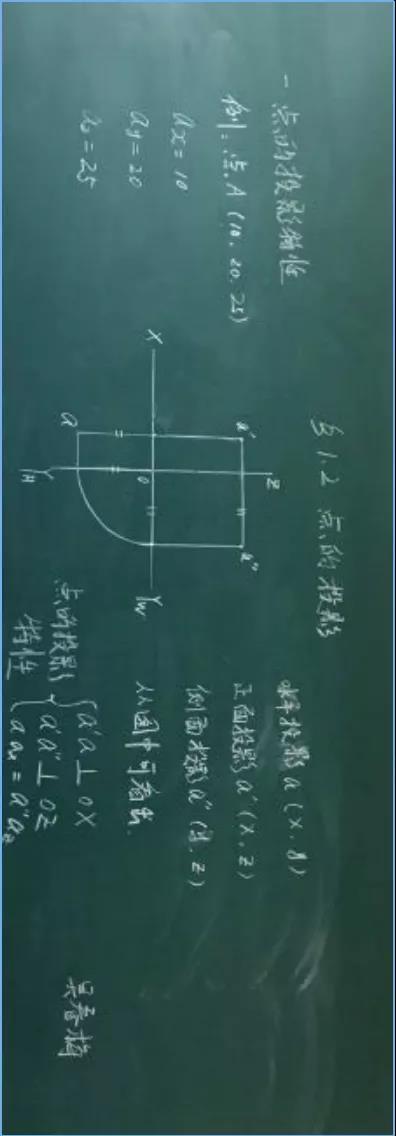 §1.2 点的投影
一 点的投影特性
例1:点A(10.20.25)
ax=10
ay=20
az=25
X
a'
Z
a"
O
a
YH
YW
水平投影a(x.y)
正面投影a'(x,z)
侧面投影a"(y.z)
从图中可看出
点的投影特性
a'a⊥OX
a'a"⊥OZ
aax=a"az
吴春梅